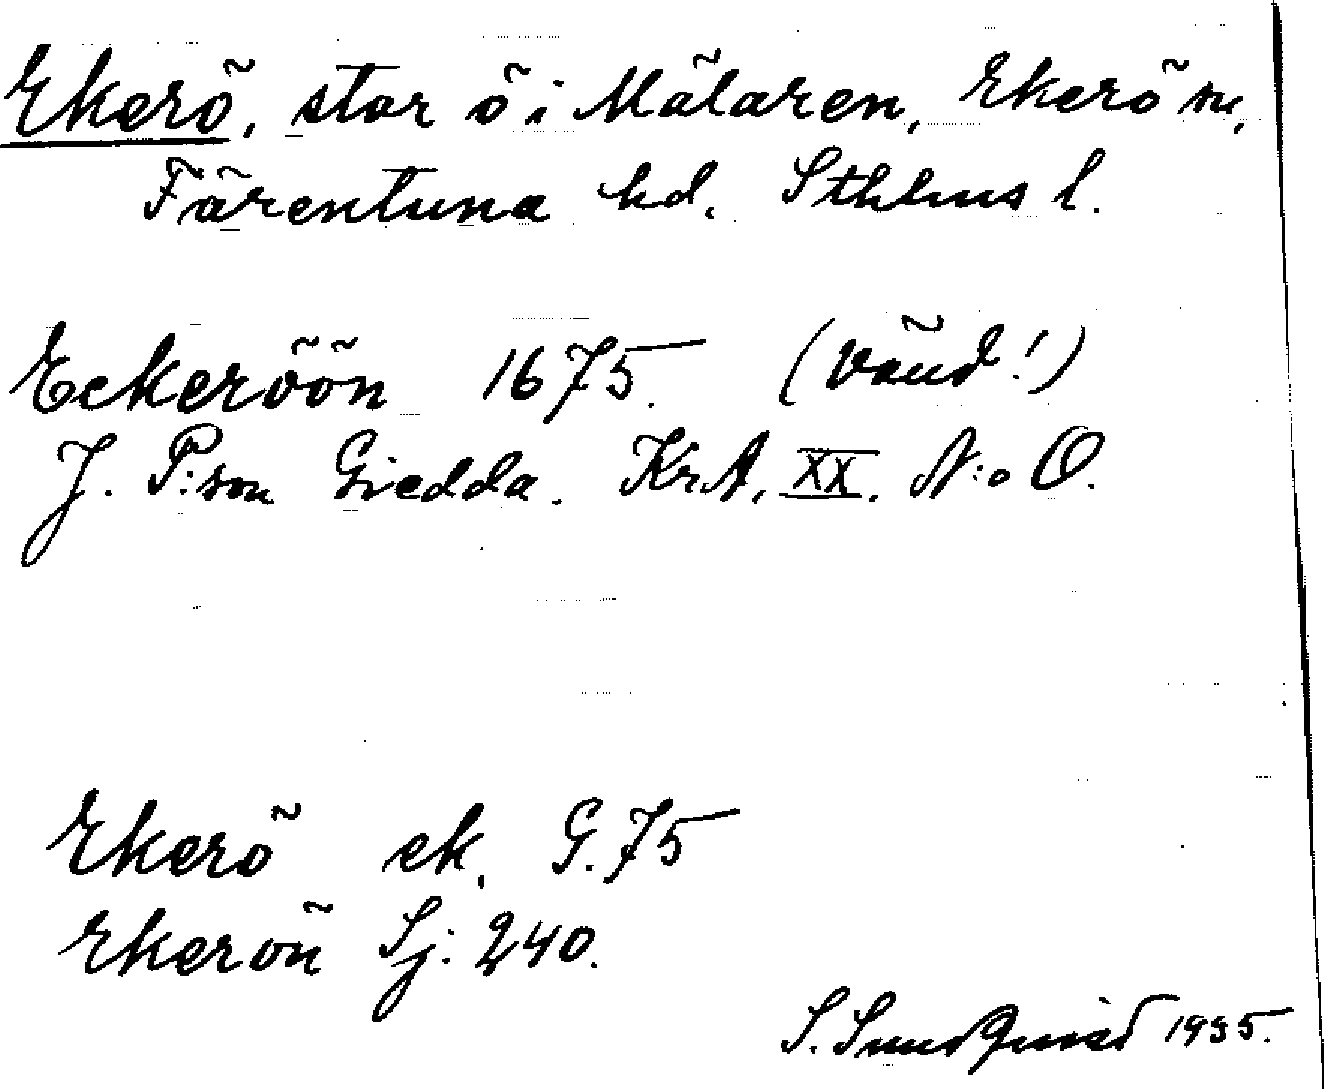 Ekerö, stor ö i Mälaren, Ekerö sn,
Färentuna hd. Sthlms l.
Eckeröön 1675. (vänd!)
J. P:son Giedda. KrA. XX. N:o O.
Ekerö ek. G. 75
Ekerön Sj: 240.
S. Sundquist 1935.